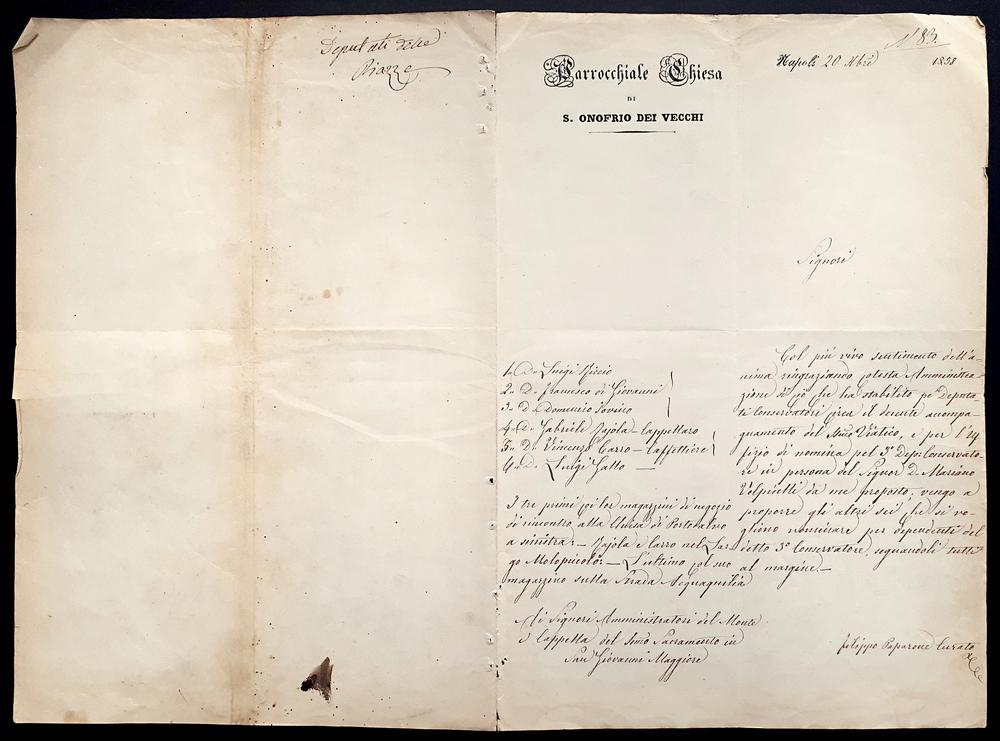 Deputati delle
Piazze
N. 83.
Parrocchiale Chiesa
DI
S. ONOFRIO DEI VECCHI
Napoli 20 Xbre 1858
Signori
Col più vivo sentimento dell'a-
nima ringraziando cotesta Amministra-
zione di ciò che ha stabilito pe' Deputa-
ti Conservatori circa il decente accompa-
gnamento del SSmo Viatico, e per l'uf-
fizio di nomina pel 3° Dep: Conservato-
re in persona del Signor D. Mariano
Volpicelli da me proposto, vengo a
proporre gli altri sei che si vo-
gliono nominare per dipendenti del
detto 3° Conservatore, segnandoli tutti
al margine.—
1. D. Luigi Riccio
2. D. Francesco di Giovanni
3. D. Domenico
4. D. Gabriele Jajola—Cappellaro
5. D. Vincenzo Carro—Caffettiere
6. D. Luigi Gallo—
I tre primi coi lor magazzini di negozio
di rincontro alla Chiesa di Portosalvo
a sinistra:—Jajola e Carro nel Lar-
go Molopiccolo:—L'ultimo col suo
magazzino sulla Strada Acquaquilia
Ai Signori Amministratori del Monte
e Cappella del SSmo Sacramento in
San Giovanni Maggiore
Filippo Paparone Curato